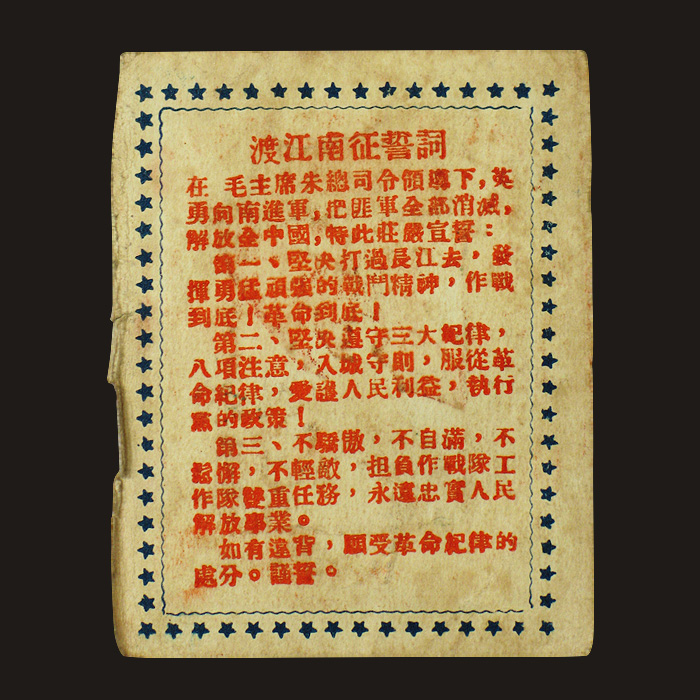 渡江南征誓詞
在 毛主席朱總司令領導下,英
勇向南進軍,把匪軍全部消滅,
解放全中國,特此莊嚴宣誓:
第一、堅決打過長江去,發
揮勇猛、頑強的戰鬥精神,作戰
到底!革命到底!
第二、堅決遵守三大紀律,
八項注意,入城守則,服從革
命紀律,愛護人民利益,執行
黨的政策!
第三、不驕傲,不自滿,不
鬆懈,不輕敵,担負作戰隊工
作隊雙重任務,永遠忠實人民
解放事業。
如有違背,願受革命紀律的
處分。謹誓。